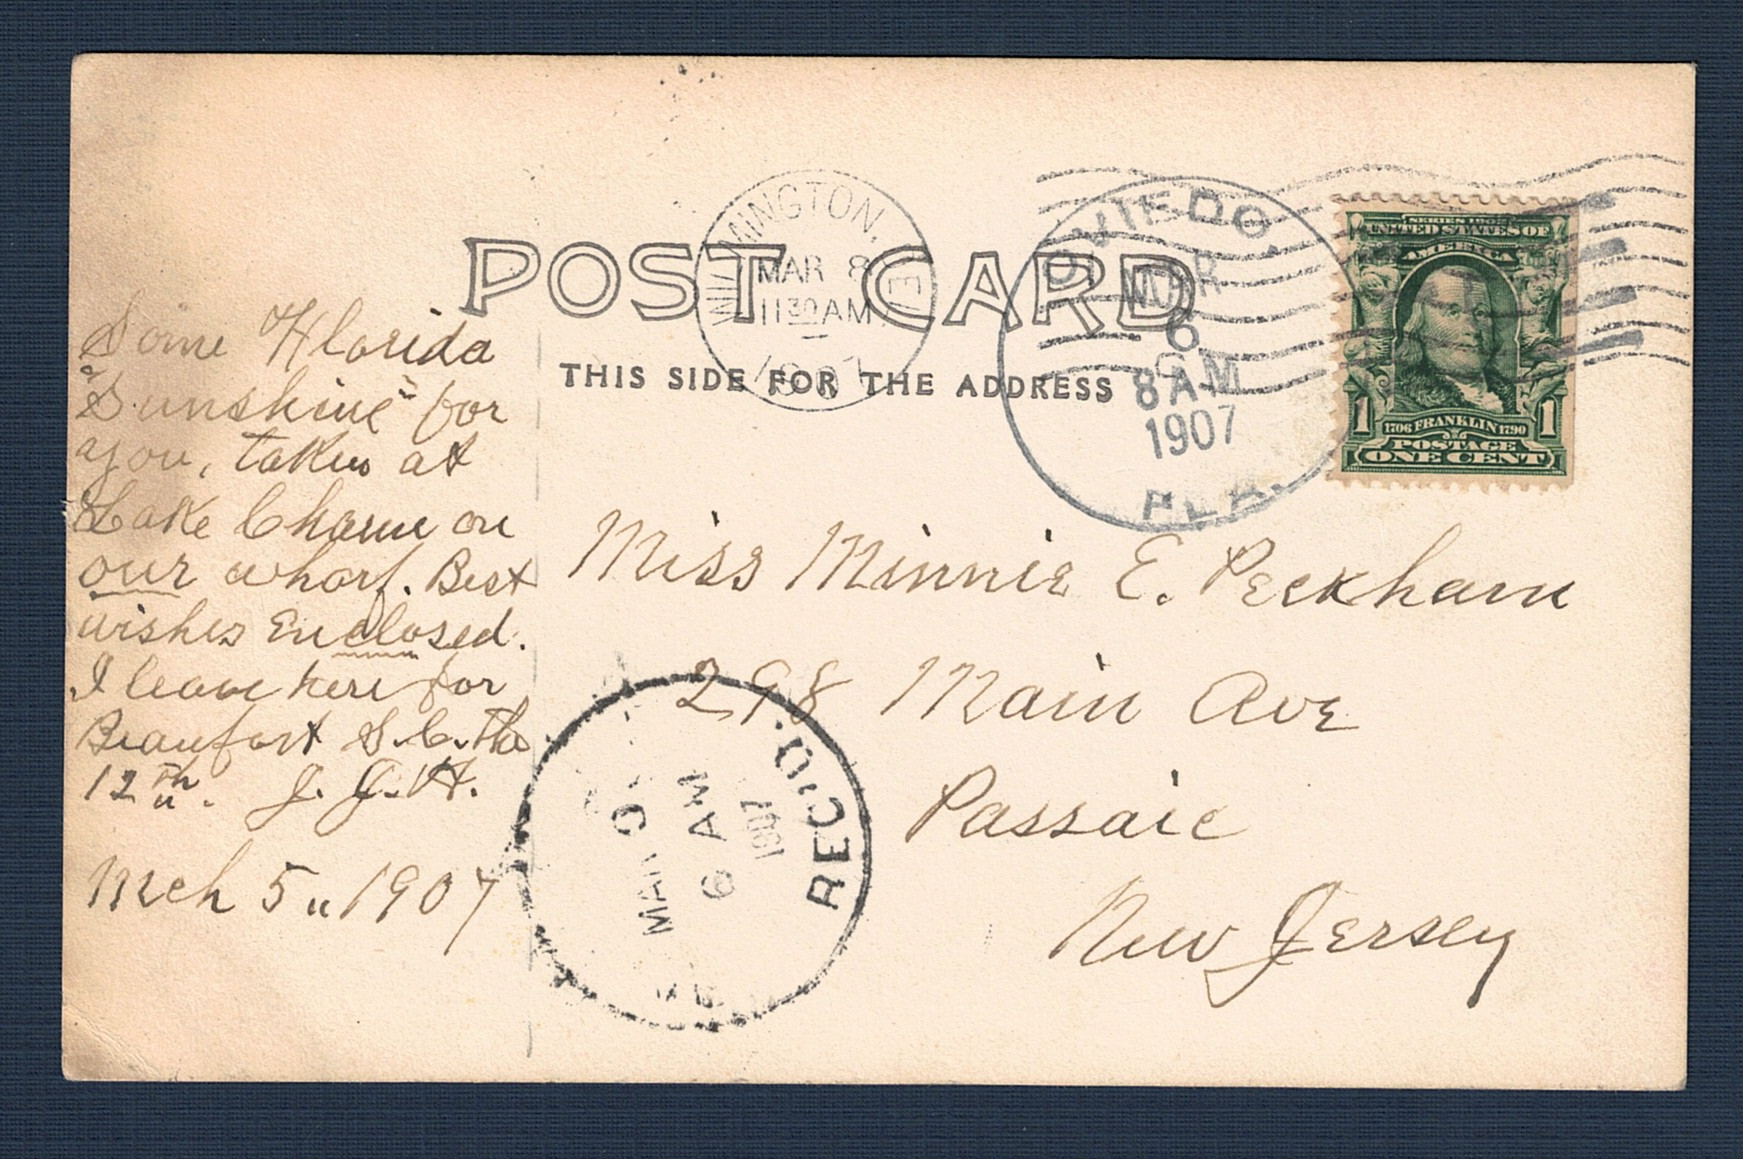 POST CARD
THIS SIDE FOR THE ADDRESS
WILMINGTON, DEL
MAR 8
11 30 AM
1907
OVIEDO,
MAR
6
8 AM
1907
FLA.
SERIES 1902
UNITED STATES OF
AMERICA
1 1706 FRANKLIN 1790 1
POSTAGE
ONE CENT
Some Florida
"Sunshine" for
you, taken at
Lake Charm on
our wharf. Best
wishes Enclosed.
I leave here for
Beaufort S.C. the
12th. J. J. H.
Mch 5 " 1907
Miss Minnie E. Peckham
298 Main Ave
Passaic
New Jersey
REC'D.
MAR 9
6 AM
1907